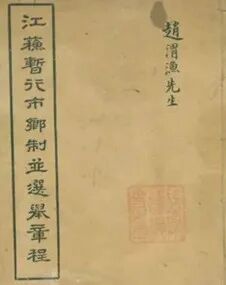 江蘇暫行市鄉制並選舉章程
趙渭漁先生